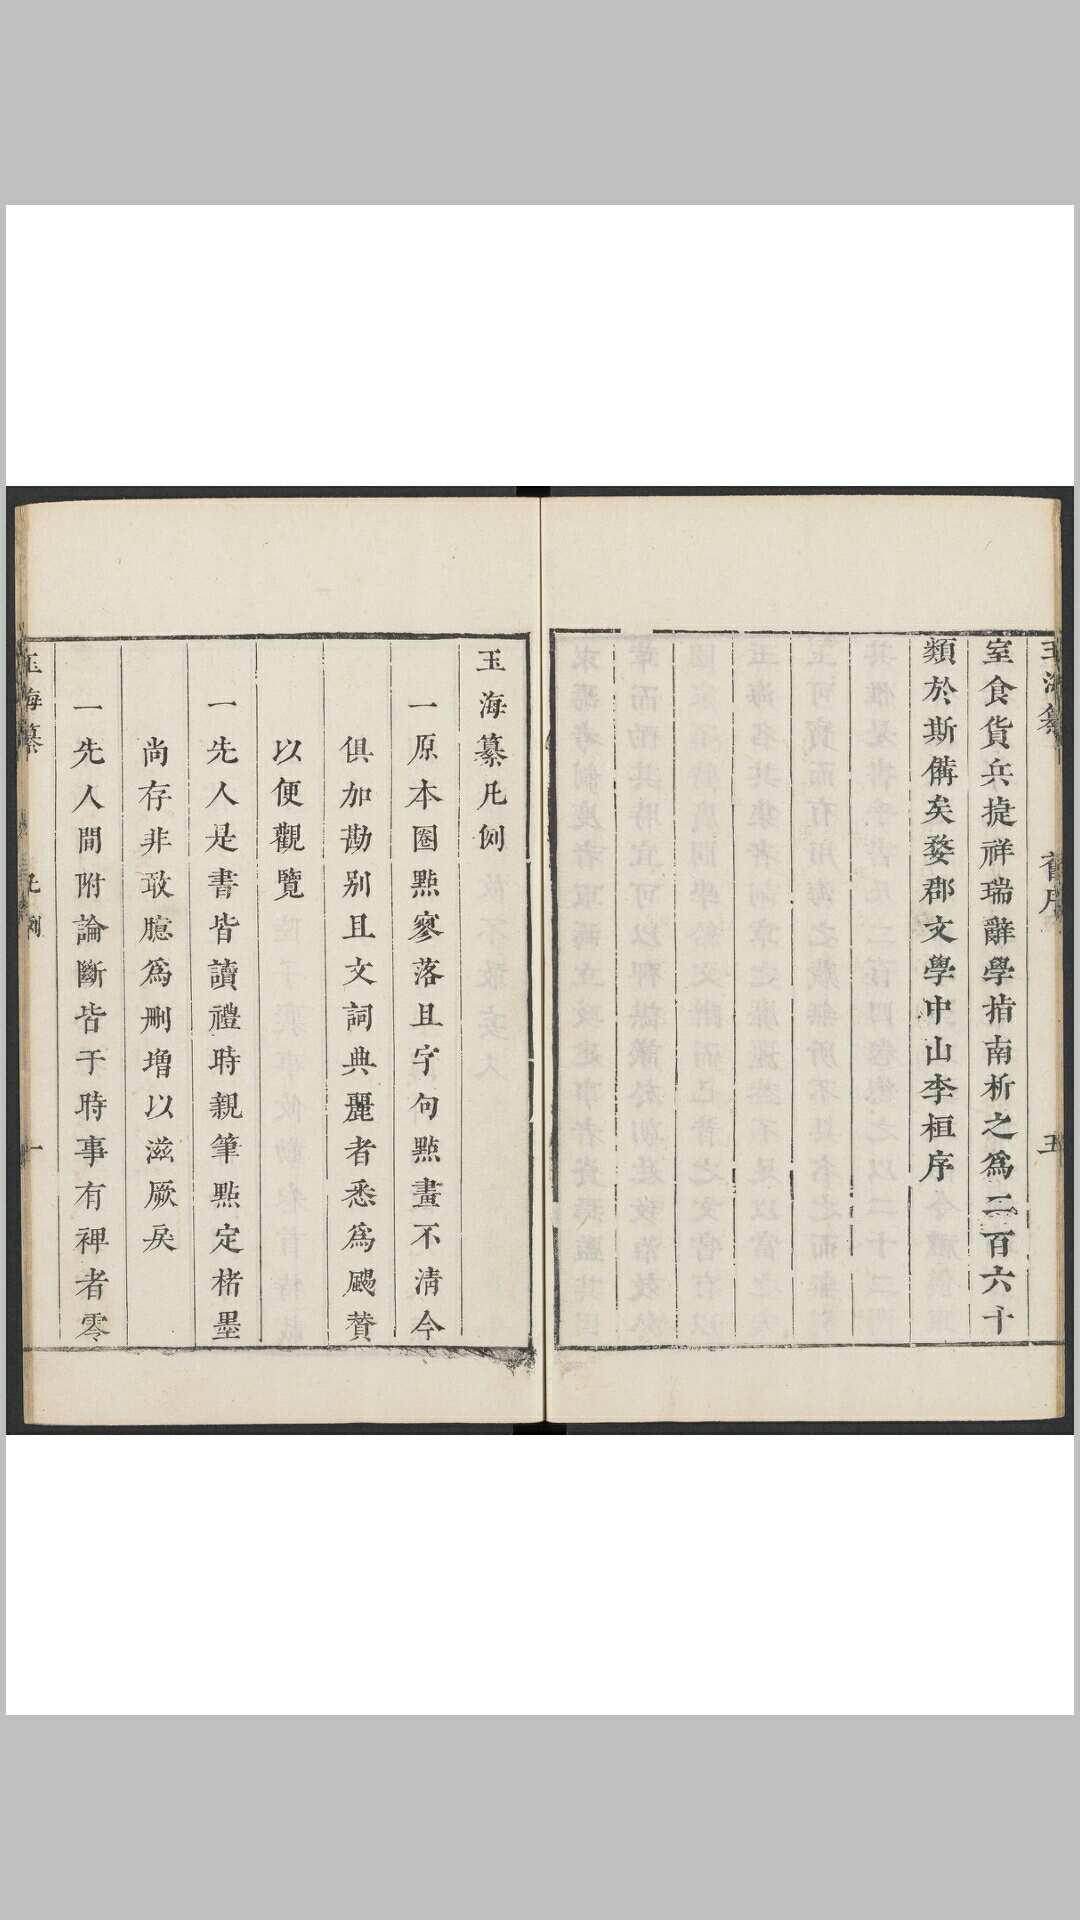 玉海纂
舊序
五
室食貨兵捷祥瑞辭學指南析之為二百六十
類於斯備矣婺郡文學中山李桓序
玉海纂凡例
一原本圈點寥落且字句點畫不清今
俱加勘別且文詞典麗者悉為颺贊
以便觀覽
一先人是書皆讀禮時親筆點定楮墨
尚存非敢臆為刪增以滋厥戾
一先人間附論斷皆于時事有裨者零
玉海纂
凡例
一